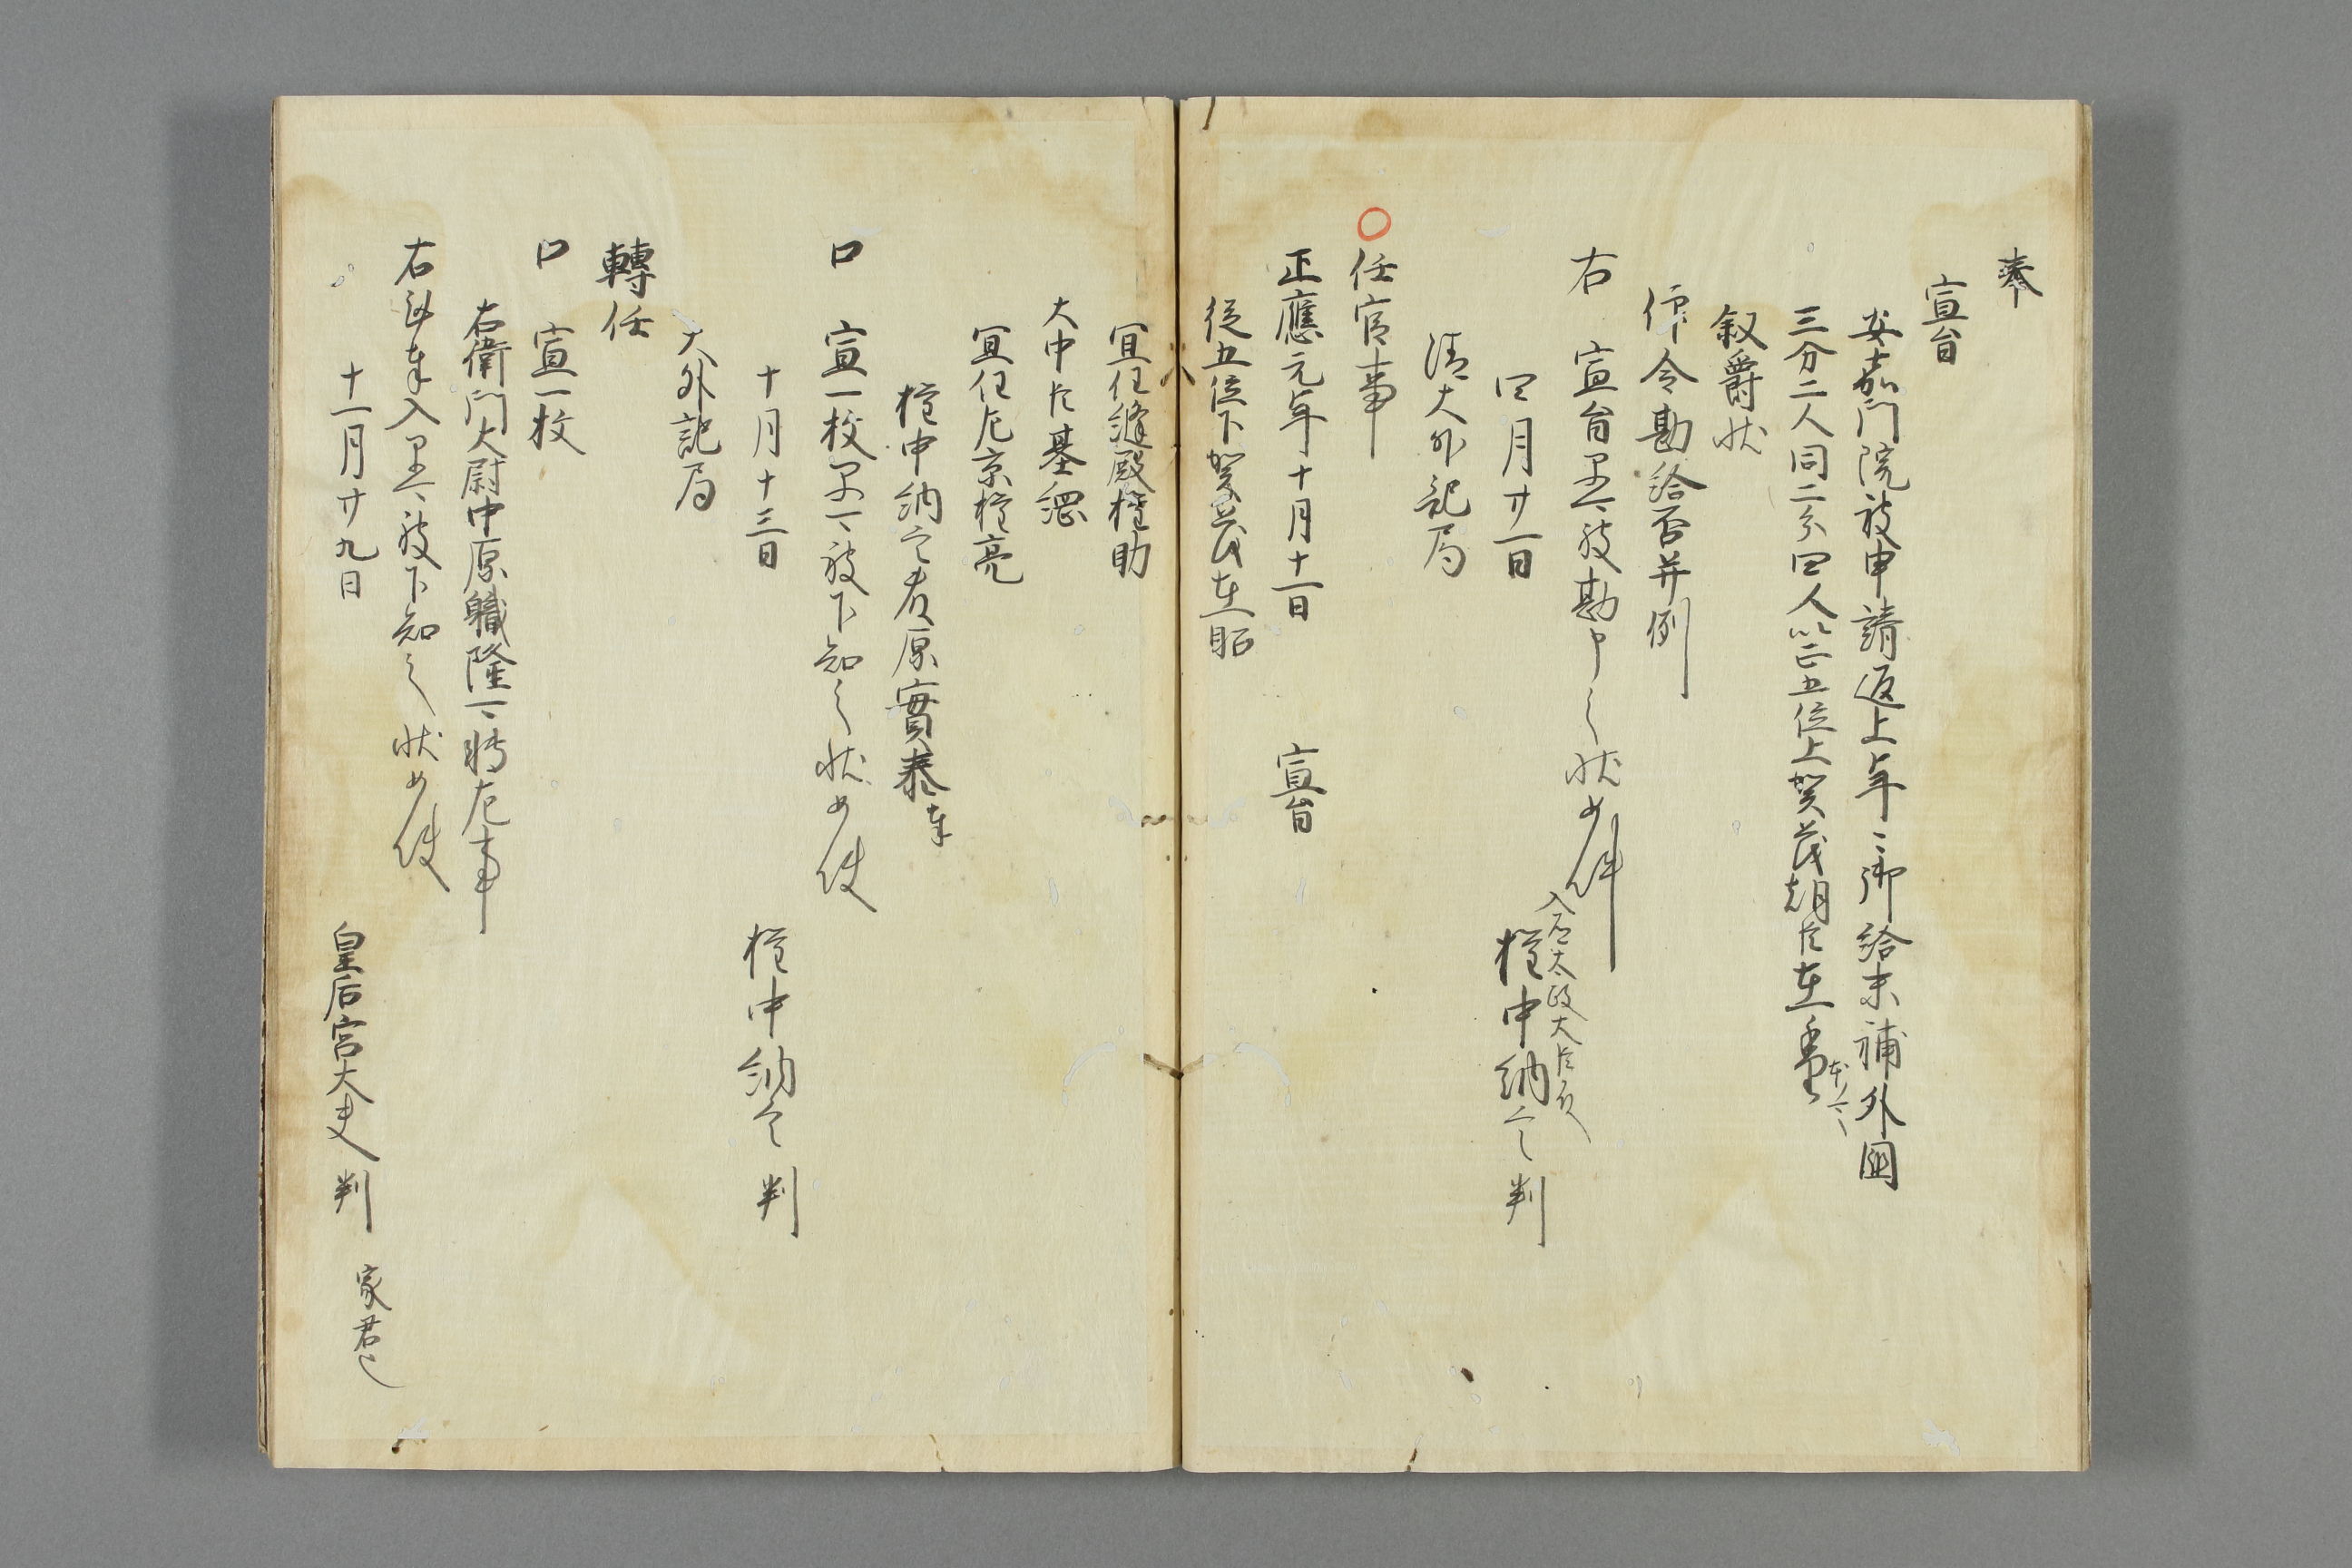 奉
宣旨
安嘉門院被申請返上年々御給未補外国
三分二人同二分四人以正五位上賀茂朝臣在秀
叙爵状
仰令勘給否并例
右宣旨早可被勘申之状如件
入道太政大臣殿
四月廿一日 権中納言判
清大外記局
○任官事
正應元年十月十一日 宣旨
従五位下賀茂在昭
宜任縫殿権助
大中臣基綱
宜任左京権亮
権中納言藤原實泰奉
口 宣一枚早可被下知之状如件
十月十三日 権中納言判
大外記局
轉任
口 宣一枚
右衛門大尉中原職隆可転左事
右奉入早可被下知之状如件
十一月廿九日 皇后宮大夫判 家君也